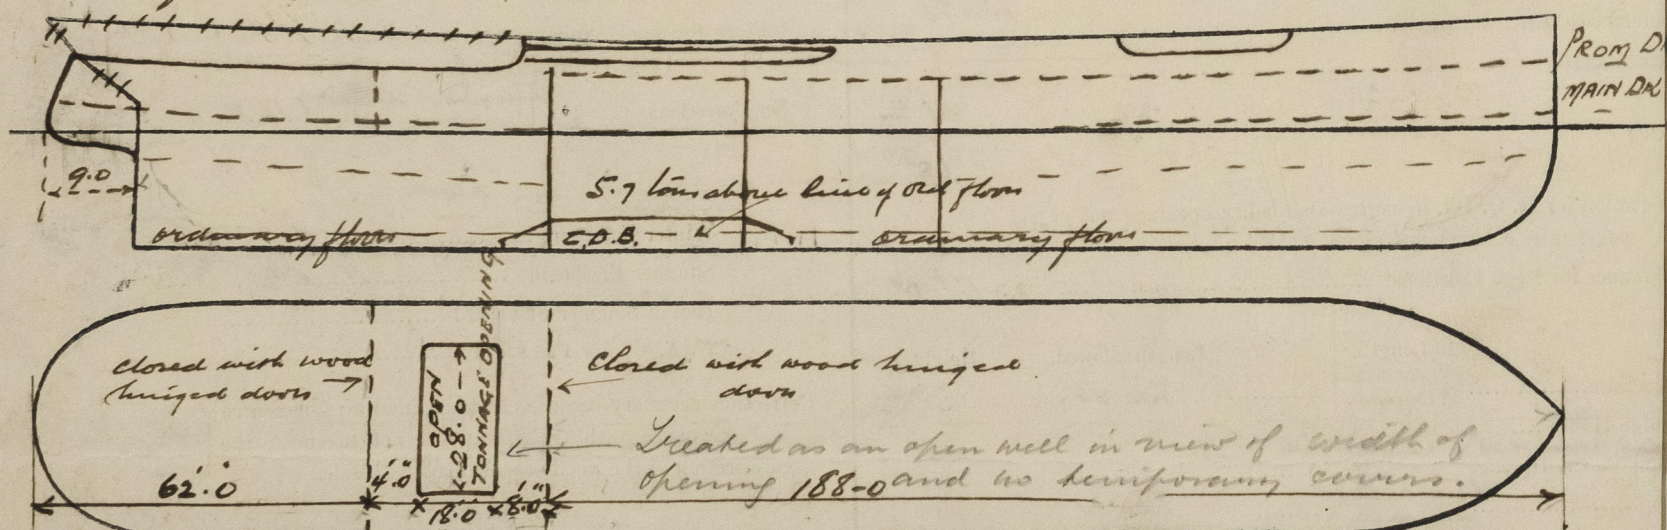 PROM D
MAIN DK
9.0
5.7 tons above line of ord floors
ordinary floors
C.D.B.
ordinary floors
closed with wood
hinged doors
OPEN
28.0
TONNAGE OPENING
Closed with wood hinged
doors
Treated as an open well in view of width of
opening 188-0 and no temporary covers.
62'.0"
4'.0"
18'.0"
8'.0"